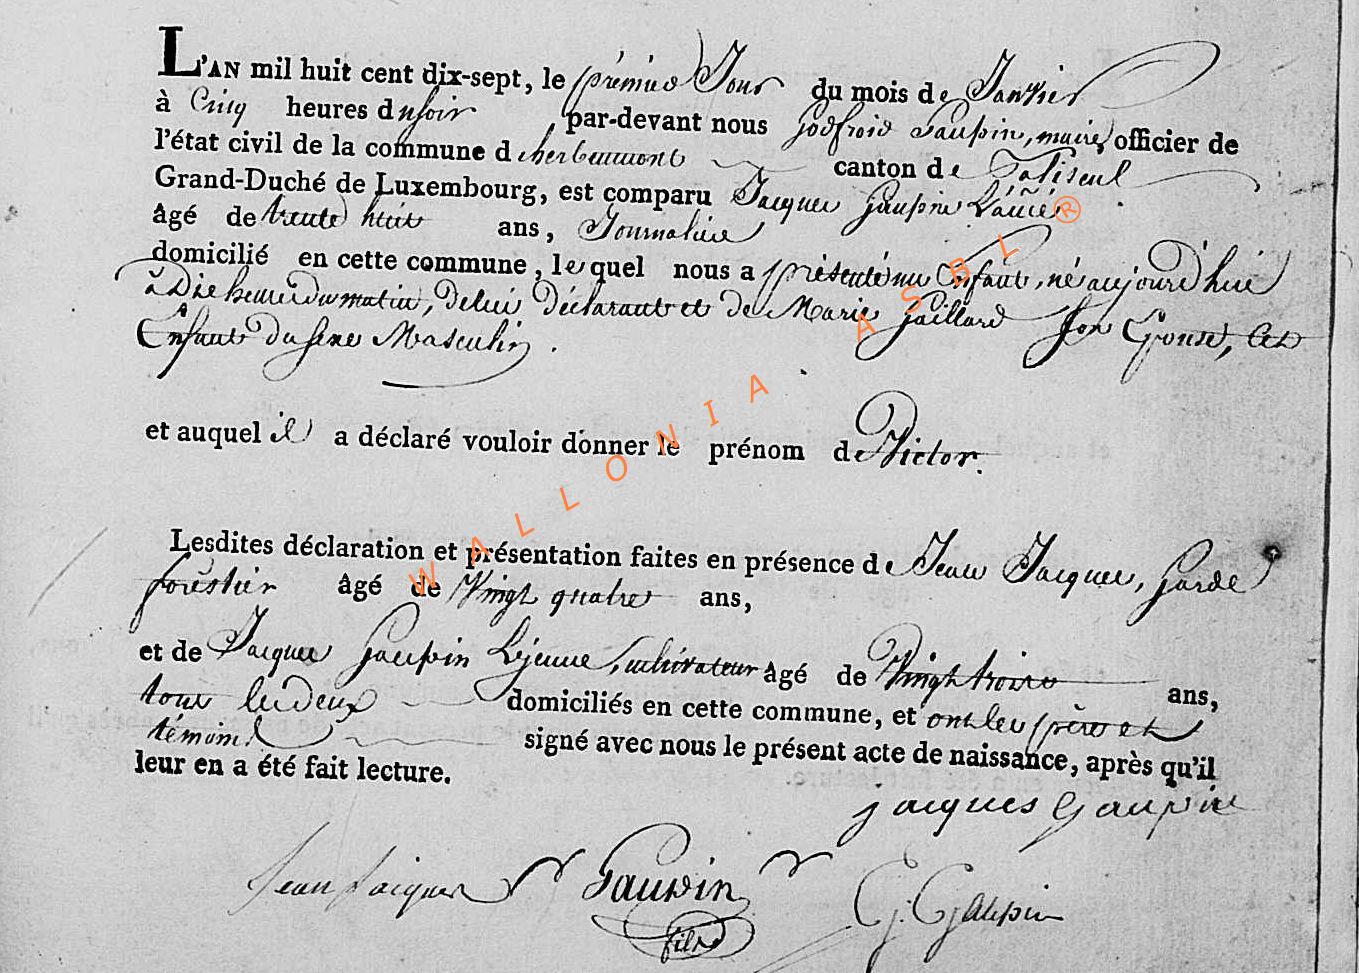 L'AN mil huit cent dix-sept, le prémier Jour du mois de Janvier
à Cinq heures du soir par-devant nous Godfroid Gaupin, maire, officier de
l'état civil de la commune d'herbeumont canton de Paliseul
Grand-Duché de Luxembourg, est comparu Jacques Gaupin L'ainé
âgé de trente huit ans, Journalier
domicilié en cette commune, lequel nous a présenté un Enfant, né aujourd'hui
à Dix heures du matin, de lui Déclarant et de Marie Gaillard Son Epouse, cet
Enfant du sexe Masculin.
et auquel il a déclaré vouloir donner le prénom de Victor.
Lesdites déclaration et présentation faites en présence de Jean Jacques, Garde
forêstier âgé de Vingt quatre ans,
et de Jacques Gaupin Lejeune, cultivateur âgé de Vingt trois ans,
tous les deux domiciliés en cette commune, et ont les père et
témoins signé avec nous le présent acte de naissance, après qu'il
leur en a été fait lecture.
jacques Gaupin
Jean Jacques Gaupin G. Gaupin
fils
WALLONIA ASBL ®